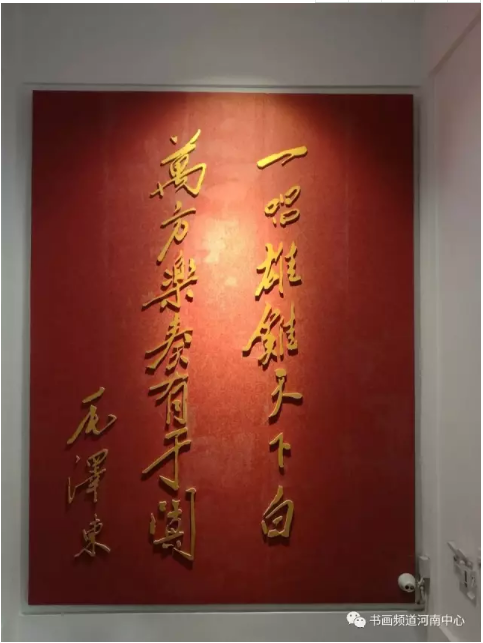 一唱雄鷄天下白
萬方樂奏有于闐
毛澤東
书画频道河南中心